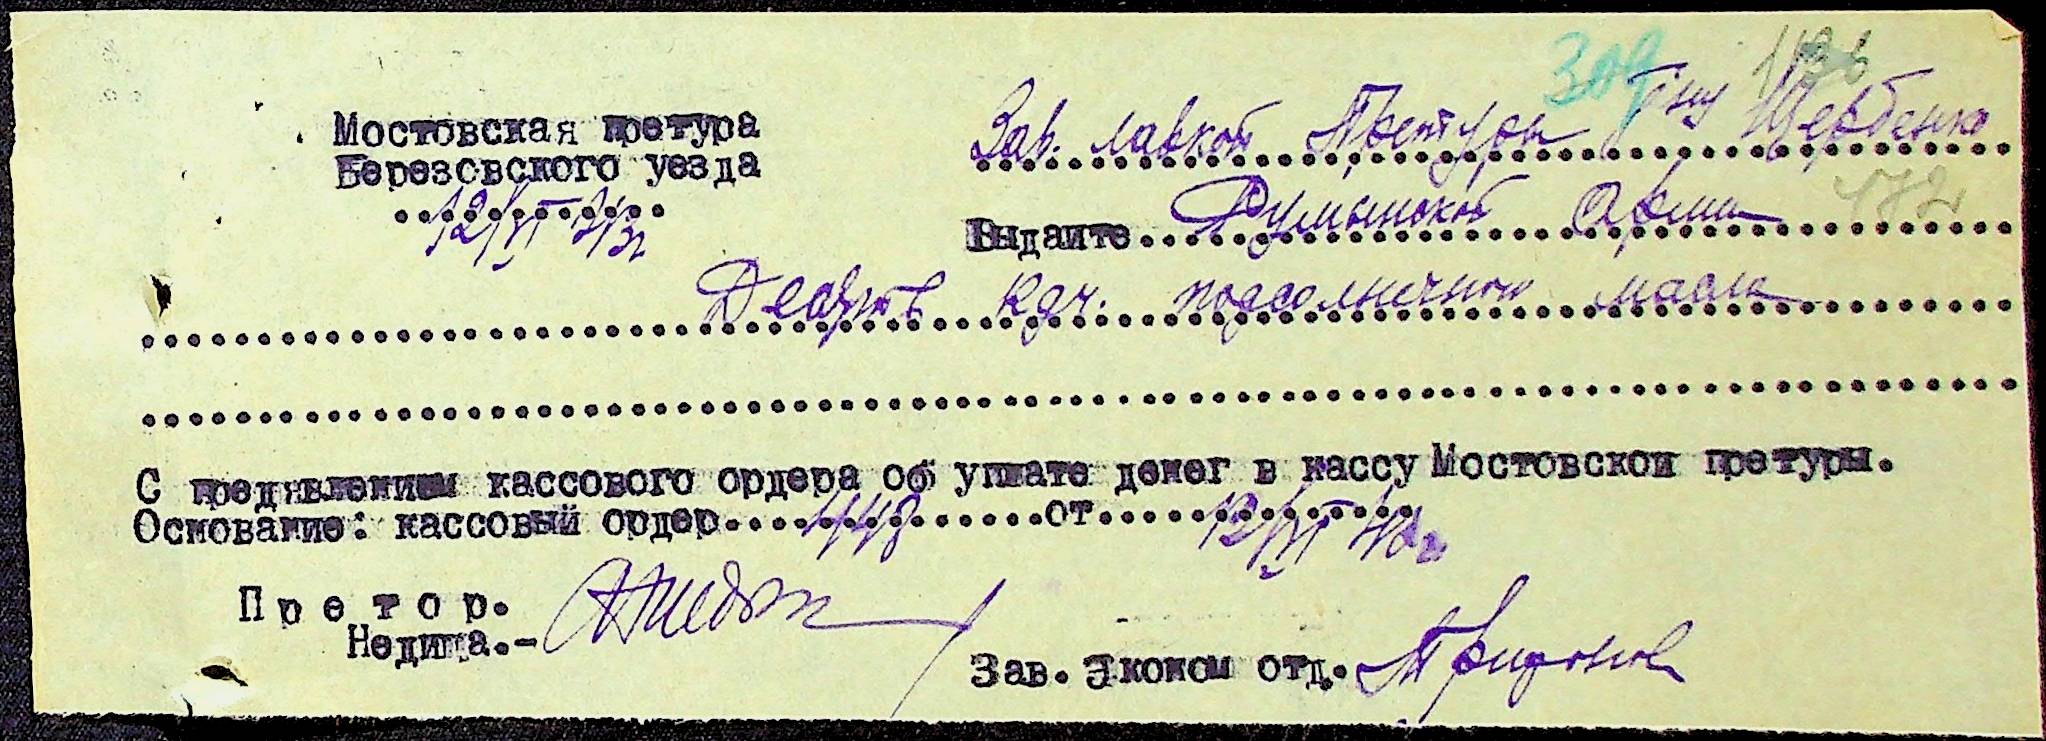 309
Мостовская претура
Березовского уезда
12/VI 43г
Зав. лавкой Претуры г-ну Щербенко
172
Выдаите Румынской Армии
Десять кгч. подсолнечной масла
С предявлением кассового ордера об уплате денег в кассу Мостовской претуры.
Основание: кассовый ордер 448 от 12/VI 43г
Претор.
Недица.-
Зав. Эконом отд.